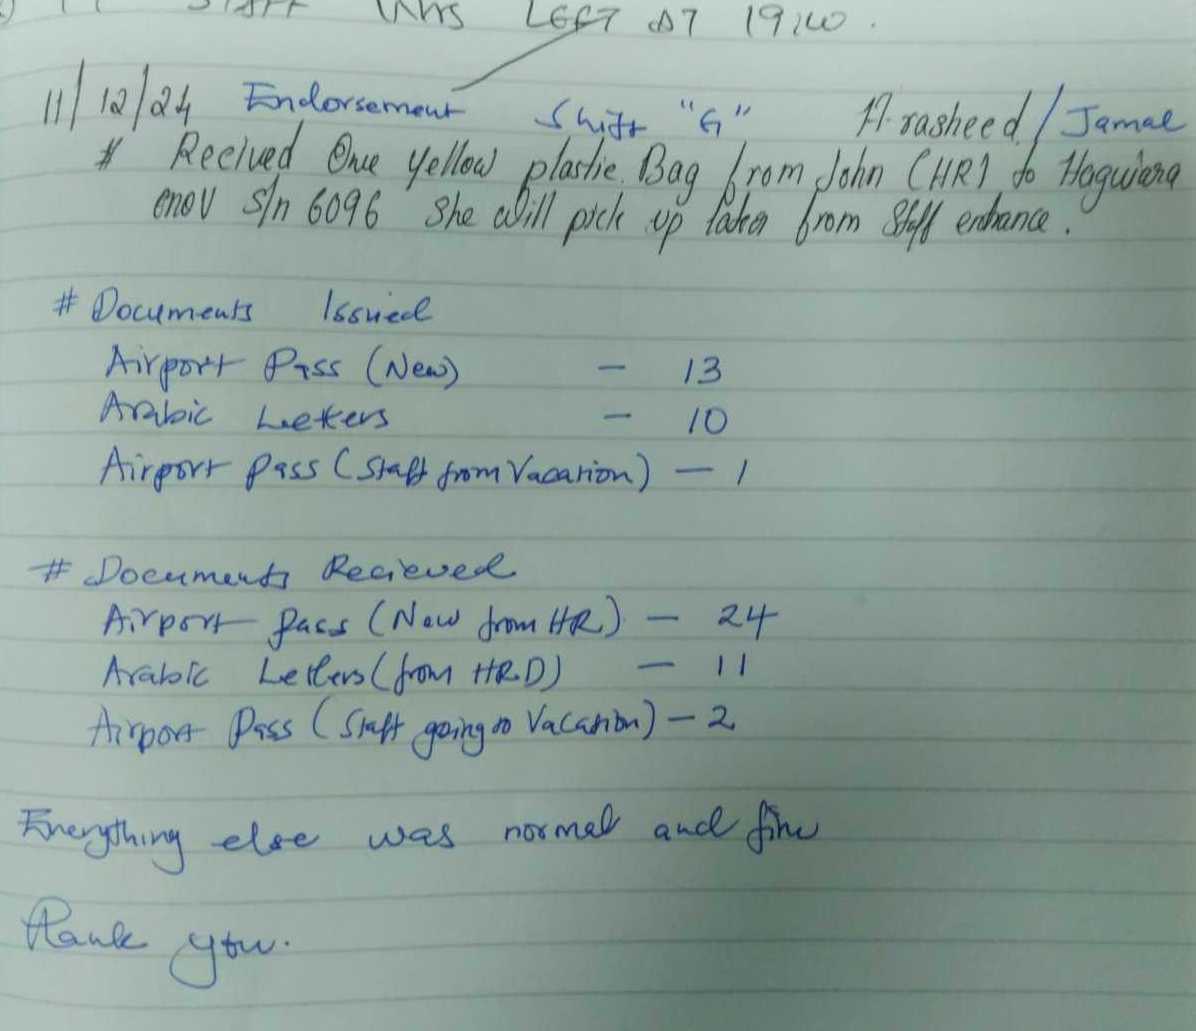 STAFF WAS LEFT AT 19:40.
11/12/24 Endorsement Shift "G" A.rasheed / Jamal
# Recived One yellow plastic Bag from John (HR) to Hagwiara
enoV S/n 6096 She will pick up later from Staff entrance.
# Documents Issued
Airport Pass (New) - 13
Arabic Letters - 10
Airport pass (Staff from Vacation) - 1
# Documents Recieved
Airport pass (New from HR) - 24
Arabic Letters (from HRD) - 11
Airport Pass (Staff going to Vacation) - 2
Everything else was normal and fine
Thank you.